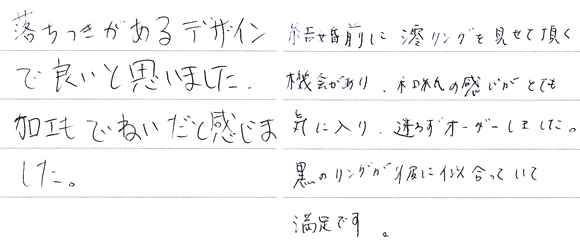 落ちつきがあるデザイン
で良いと思いました.
加工もていねいだと感じま
した。
結婚前に 澪リングを見せて頂く
機会があり、和風の感じがとても
気に入り、迷わずオーダーしました。
黒のリングが彼に似合っていて
満足です。